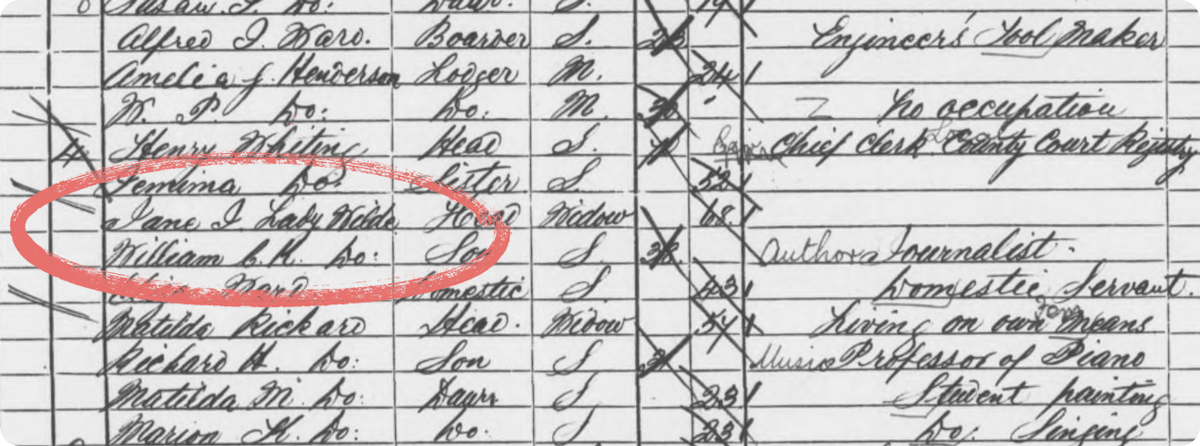 Susan S. Do: Daur. S. 19
Alfred I. Ward. Boarder S. 23 Engineer's Tool Maker
Amelia J. Henderson Lodger M. 24
W. P. Do: Do: M. No occupation
4 Henry Whiting Head S. Chief Clerk County Court Registry
Jemima Do: Sister S. 52
Jane I. Lady Wilde Head Widow 68
William C. K. Do: Son S. 38 Author Journalist.
Ward Domestic S 43 Domestic Servant.
Matilda Rickard Head. Widow 54 Living on own Means
Richard H. Do: Son S Music Professor of Piano
Matilda M. Do: Daur S 23 Student painting
Marion K. Do: Do. S 23 Do: Singing